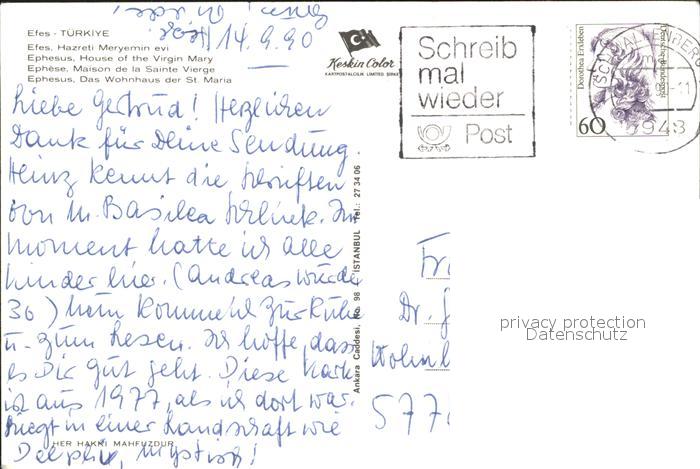 Efes - TÜRKİYE
Efes, Hazreti Meryemin evi
Ephesus, House of the Virgin Mary
Ephèse, Maison de la Sainte Vierge
Ephesus, Das Wohnhaus der St. Maria
14.9.90
Liebe Gertrud! Herzlichen
Dank für Deine Sendung.
Heinz kennt die Schriften
von M. Basilea Schlink. Im
Moment hatte ich alle
Kinder hier. (Andreas wurde
30) Nun komme ich zur Ruhe
u. zum Lesen. Ich hoffe, dass
es Dir gut geht. Diese Karte
ist aus 1977, als ich dort war.
Liegt in einer Landschaft wie
Delphi, Mystisch!
HER HAKKI MAHFUZDUR
Keskin Color
KARTPOSTALCILIK LIMITED
Ankara Caddesi, No. 98 İSTANBUL Tel.: 27 34 06
Schreib
mal
wieder
Post
Dorothea Erxleben
Deutsche Bundespost
60
Fr
Dr.
Wohn
577
privacy protection
Datenschutz